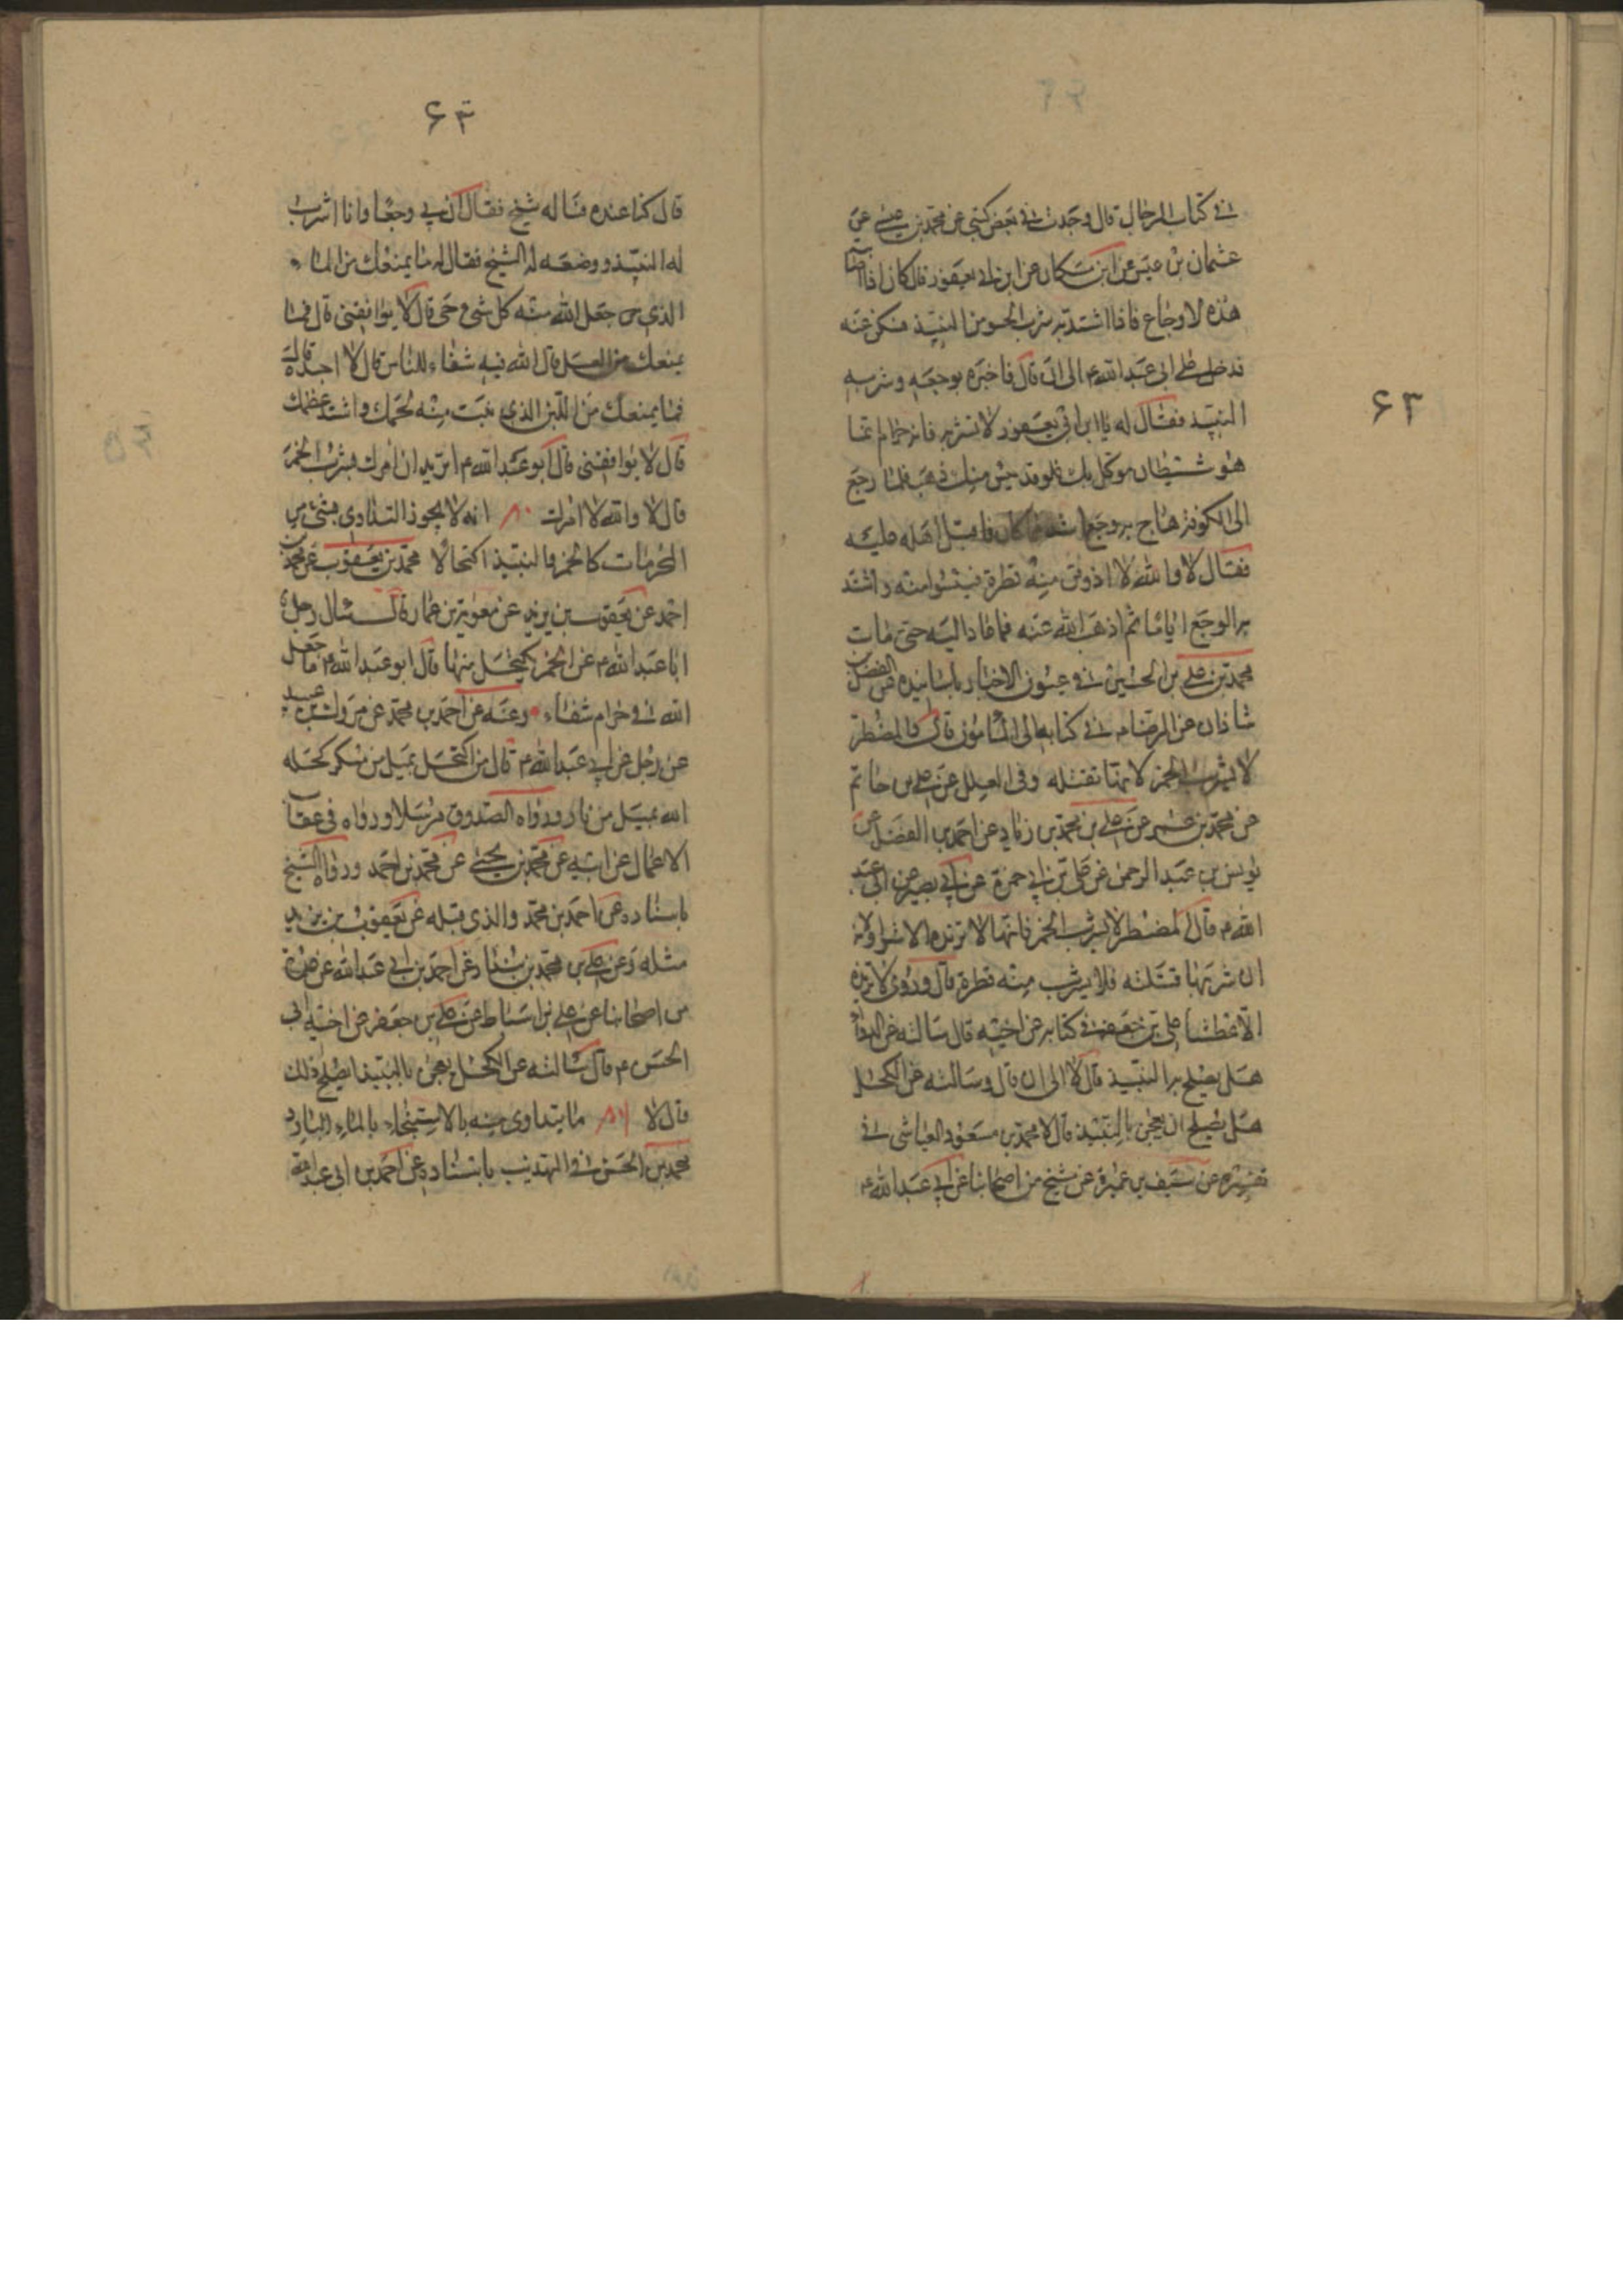 ۶۳
فی کتاب الرجال قال وجدت فی بعض کتبی عن محمد بن عیسی عن
عثمان بن عیسی عن ابن مسکان عن ابن ابی یعفور قال کان اذا اصابته
هذه الاوجاع فاذا اشتدت به شرب الحسو من النبیذ فسکن عنه
فدخل علی ابی عبد الله ع الی ان قال فاخبره بوجعه و شربه
النبیذ فقال له یا ابن ابی یعفور لا تشربه فانه حرام انما
هو شیطان موکل بک فلو قد یئس منک ذهب فلما رجع
الی الکوفة هاج به وجع اشد مما کان فاقبل اهله علیه
فقال لا والله لا اذوقن منه قطرة فیئسوا منه واشتد
به الوجع ایاما ثم اذهب الله عنه فما عاد الیه حتی مات
محمد بن علی بن الحسین فی عیون الاخبار باسانیده عن الفضل بن
شاذان عن الرضا ع فی کتابه الی المأمون قال والمضطر
لا یشرب الخمر لانها تقتله وفی العلل عن علی بن حاتم
عن محمد بن عمر عن علی بن محمد بن زیاد عن احمد بن الفضل عن
یونس بن عبد الرحمن عن علی بن ابی حمزة عن ابی بصیر عن ابی عبد
الله ع قال المضطر لا یشرب الخمر فانها لا تزیده الا شرا ولانه
ان شربها قتلته فلا یشرب منه قطرة قال وروی لا تزیده
الا عطشا علی بن جعفر فی کتابه عن اخیه قال سالته عن الدواء
هل یصلح بالنبیذ قال لا الی ان قال وسالته عن الکحل
هل یصلح ان یعجن بالنبیذ قال لا محمد بن مسعود العیاشی فی
تفسیره عن سیف بن عمیرة عن شیخ من اصحابنا عن ابی عبد الله ع
۶۴
قال کنا عنده فساله شیخ فقال ان بی وجعا وانا اشرب
له النبیذ و وضعه له الشیخ فقال له ما یمنعک من الماء
الذی جعل الله منه کل شیء حی قال لا یوافقنی قال فما
یمنعک من العسل قال الله فیه شفاء للناس قال لا اجده قال
فما یمنعک من اللبن الذی نبت منه لحمک واشتد عظمک
قال لا یوافقنی قال ابو عبد الله ع اترید ان امرک بشرب الخمر
قال لا والله لا امرک ۸۰ انه لا یجوز التداوی بشیء من
المحرمات کالخمر والنبیذ اکتحالا محمد بن یعقوب عن محمد بن
احمد عن یعقوب بن یزید عن معویة بن عمارة قال سئال رجل
ابا عبد الله ع عن الخمر یکتحل منها قال ابو عبد الله ع ما جعل
الله فی حرام شفاء وعنه عن احمد بن محمد عن مروک بن عبید
عن رجل عن ابی عبد الله ع قال من اکتحل بمیل من مسکر کحله
الله بمیل من نار ورواه الصدوق مرسلا ورواه فی عقاب
الاعمال عن ابیه عن محمد بن یحیی عن محمد بن احمد ورواه الشیخ
باسناده عن احمد بن محمد والذی قبله عن یعقوب بن یزید
مثله وعن علی بن محمد بن بندار عن احمد بن ابی عبد الله عن عدة
من اصحابنا عن علی بن اسباط عن علی بن جعفر عن اخیه ابی
الحسن ع قال سالته عن الکحل یعجن بالنبیذ ایصلح ذلک
قال لا ۸۱ ما یتداوی منه بالاستنجاء بالماء البارد
محمد بن الحسن فی التهذیب باسناده عن احمد بن ابی عبد الله